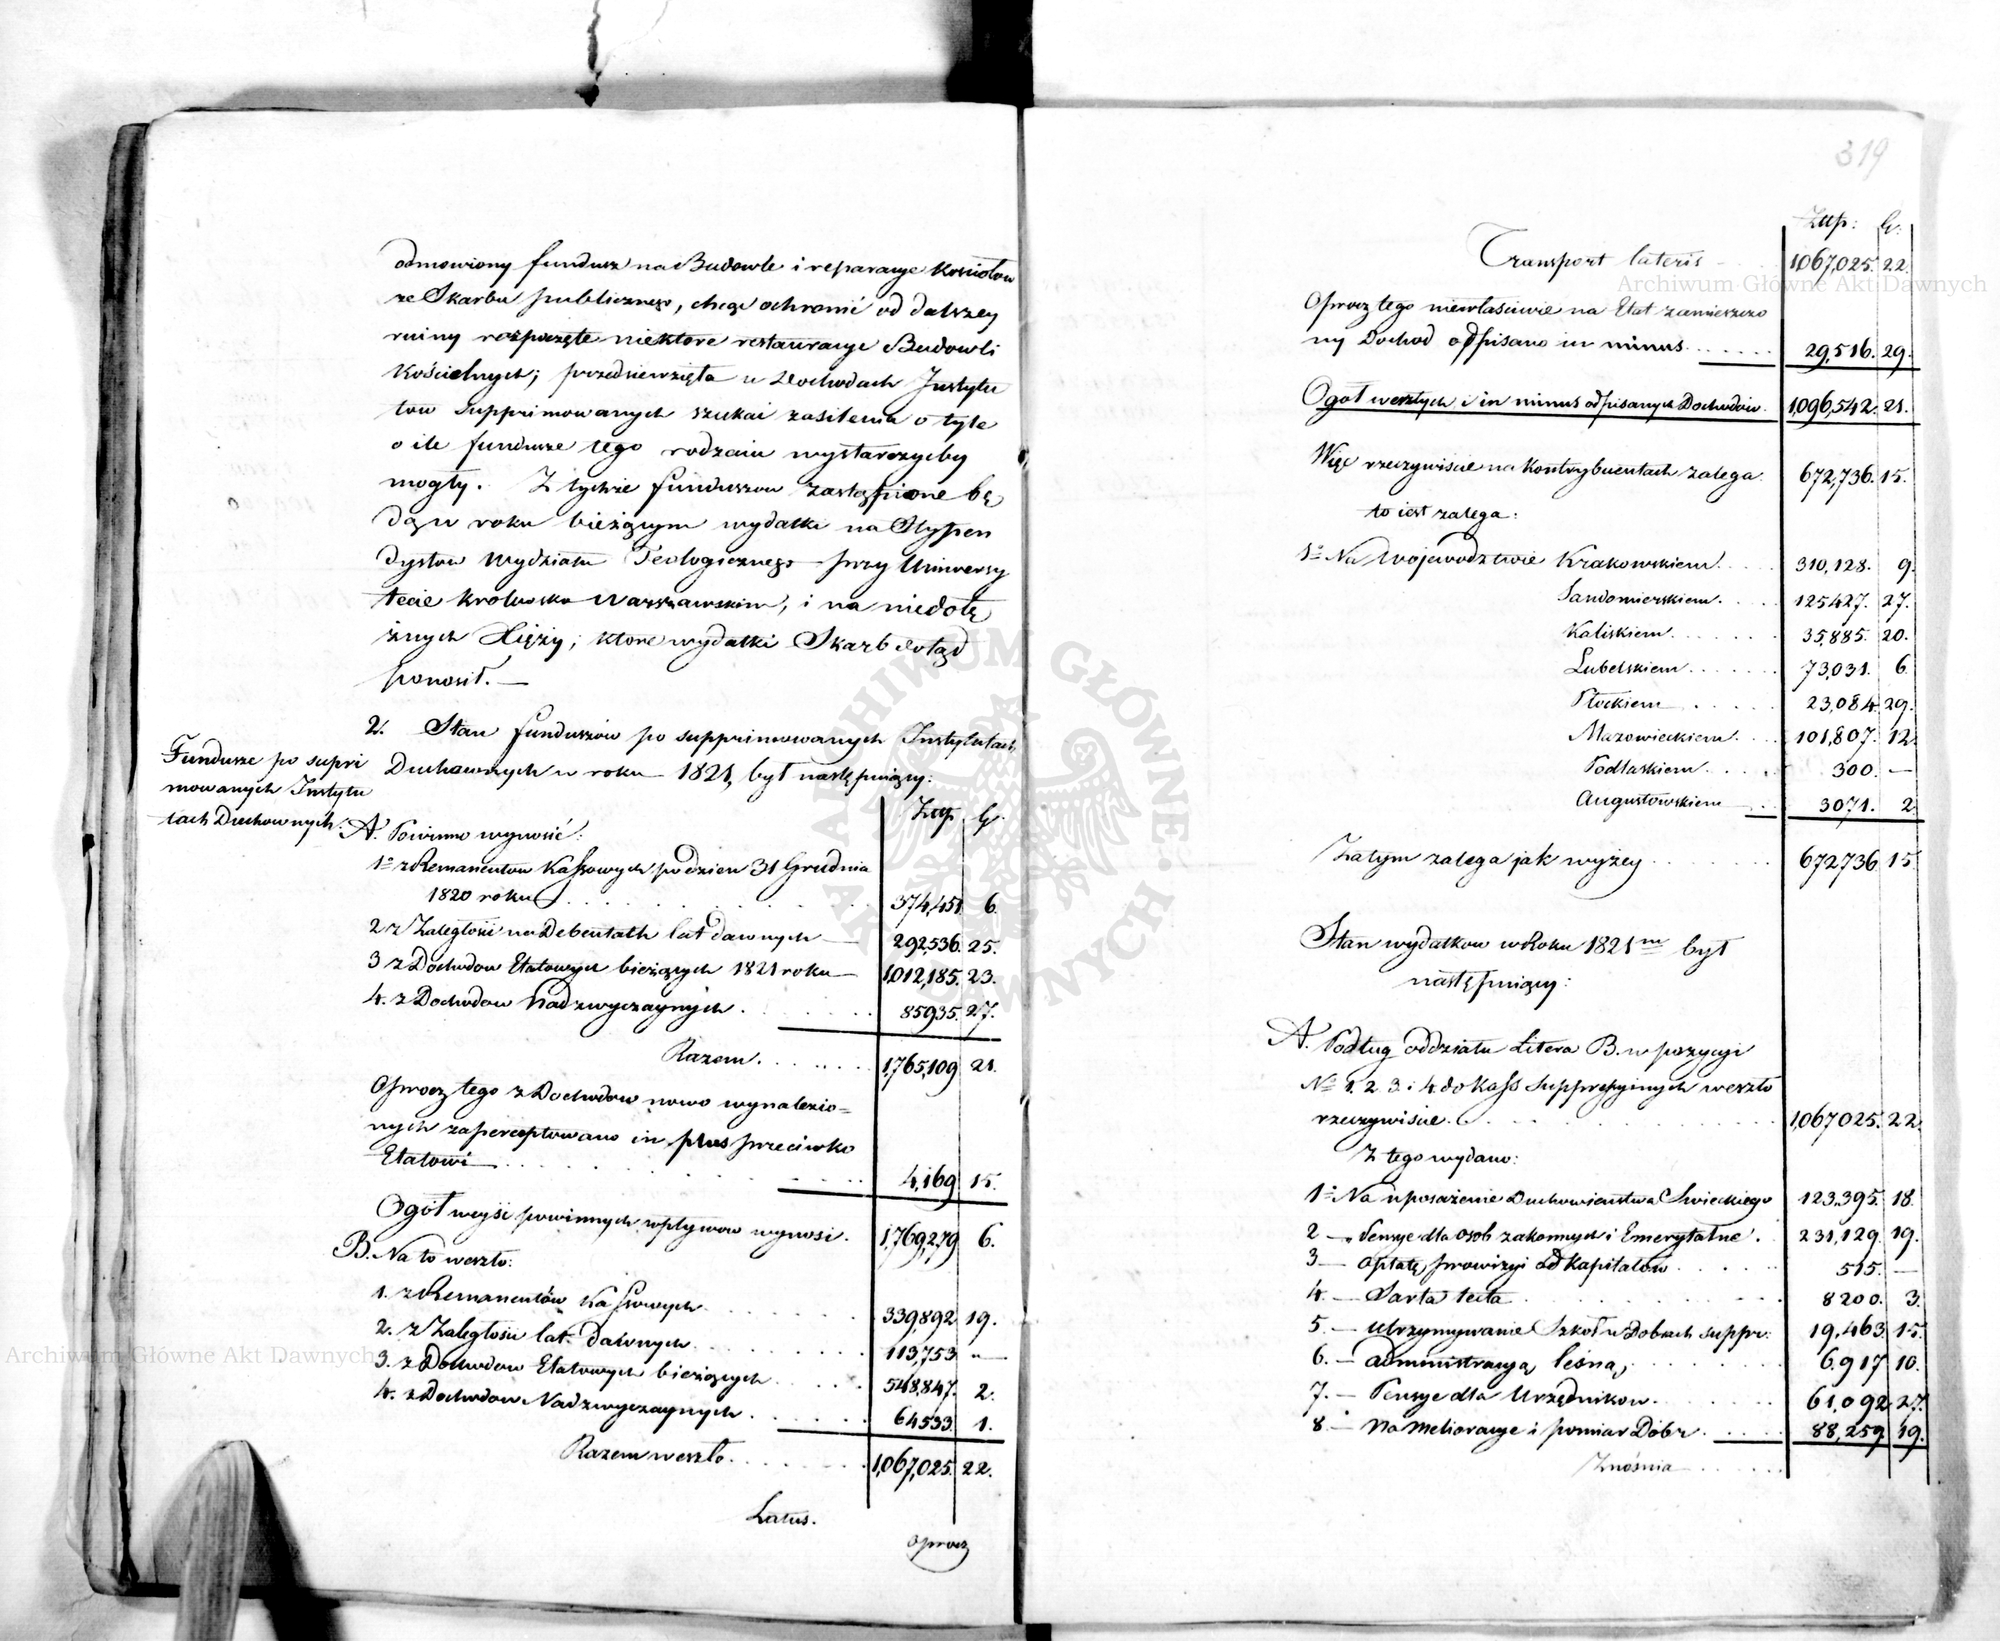 odmowiony fundusz na Budowle i reparacye Kosciołow
ze Skarbu publicznego, chcąc ochronić od dalszey
ruiny rozpoczęte niektore restauracye Budowli
Kościelnych; przedsiewzięła w Dochodach Instytu
tow supprimowanych szukać zasilenia o tyle
o ile fundusze tego rodzaiu wystarczyćby
mogły. Z tychże funduszow zastąpione bę
dą w roku bieżącym wydatki na Stypen
dystow Wydziału Teologicznego przy Uniwersy
tecie Krolewsko Warszawskim, i na niedołę
żnych Xięży; ktore wydatki Skarb dotąd
ponosił. —
Fundusze po supri
mowanych Instytu
tach Duchownych.
2. Stan funduszów po supprimowanych Instytutach
Duchownych w roku 1821, był następuiący:
Złłp. G.
A. Powinno wynosić:
1o z Remanentow Kassowych podzien 31 Grudnia
1820 roku . . . 374,451. 6.
2 z Zaległości na Debentach lat dawnych — 292,536. 25.
3 z Dochodow Etatowych bieżących 1821 roku — 1,012,185. 23.
4. z Dochodow Nadzwyczaynych . . . 85935. 27.
Razem . . . 1,765,109 21.
Oprocz tego z Dochodow nowo wynalezio=
nych zaperceptowano in plus przeciwko
Etatowi — . . . 4,169. 15.
Ogół weyśc powinnych wpływow wynosi. 1,769,279 6.
B. Na to weszło:
1. z Remanentów Kassowych . . . 339,892 19.
2. z Zaległości lat dawnych . . . 113,753 „ —
3. z Dochodow Etatowych bieżących . . . 548,847. 2.
4. z Dochodow Nadzwyczaynych . . . 64533. 1.
Razem weszło . . . 1,067,025. 22.
Latus.
oprocz
319
Złłp: G:
Transport lateris — 1,067,025. 22.
Oprocz tego niewłaściwie na Etat zamieszczo
ny Dochod odpisano in minus . . . 29,516. 29.
Ogół weszłych i in minus odpisanych Dochodów. 1,096,542. 21.
Więc rzeczywiście na Kontrybuentach zalega. 672,736. 15.
to iest zalega:
1o Na Woiewodztwie Krakowskiem . . . 310,128. 9.
Sandomierskiem . . . 125427. 27.
Kaliskiem . . . 35,885. 20.
Lubelskiem . . . 73,031. 6.
Płockiem . . . 23,084 29.
Mazowieckiem . . . 101,807. 12
Podlaskiem . . . 300. —
Augustowskiem — . . 3071. 2
Zatym zalega jak wyżey . . . 672736 15
Stan wydatkow w Roku 1821m był
następuiący:
A. Podług oddziału Litera B. w pozycyi
No 1. 2. 3. i 4. do Kass suppressyinych weszło
rzeczywiście . . . 1,067025. 22.
Z tego wydano:
1o Na uposażenie Duchowieństwa Swieckiego 123,395. 18.
2 — „ Pensye dla osob zakonnych i Emerytalne . 231,129. 19.
3 — opłatę prowizyi od Kapitałow . . . 515. —
4. — Sarta tecta . . . 8200. 3.
5. — utrzymywanie Szkoł w Dobrach suppr: 19,463. 15.
6. — administracyą leśną, . . . 6,917 10.
7. — Pensye dla Urzędnikow . . . 61,092 27.
8 — Na melioracye i pomiar Dóbr . . . 88,259. 19.
Znośnia . . .
Archiwum Główne Akt Dawnych
Archiwum Główne Akt Dawnych
ARCHIWUM GŁÓWNE AKT DAWNYCH